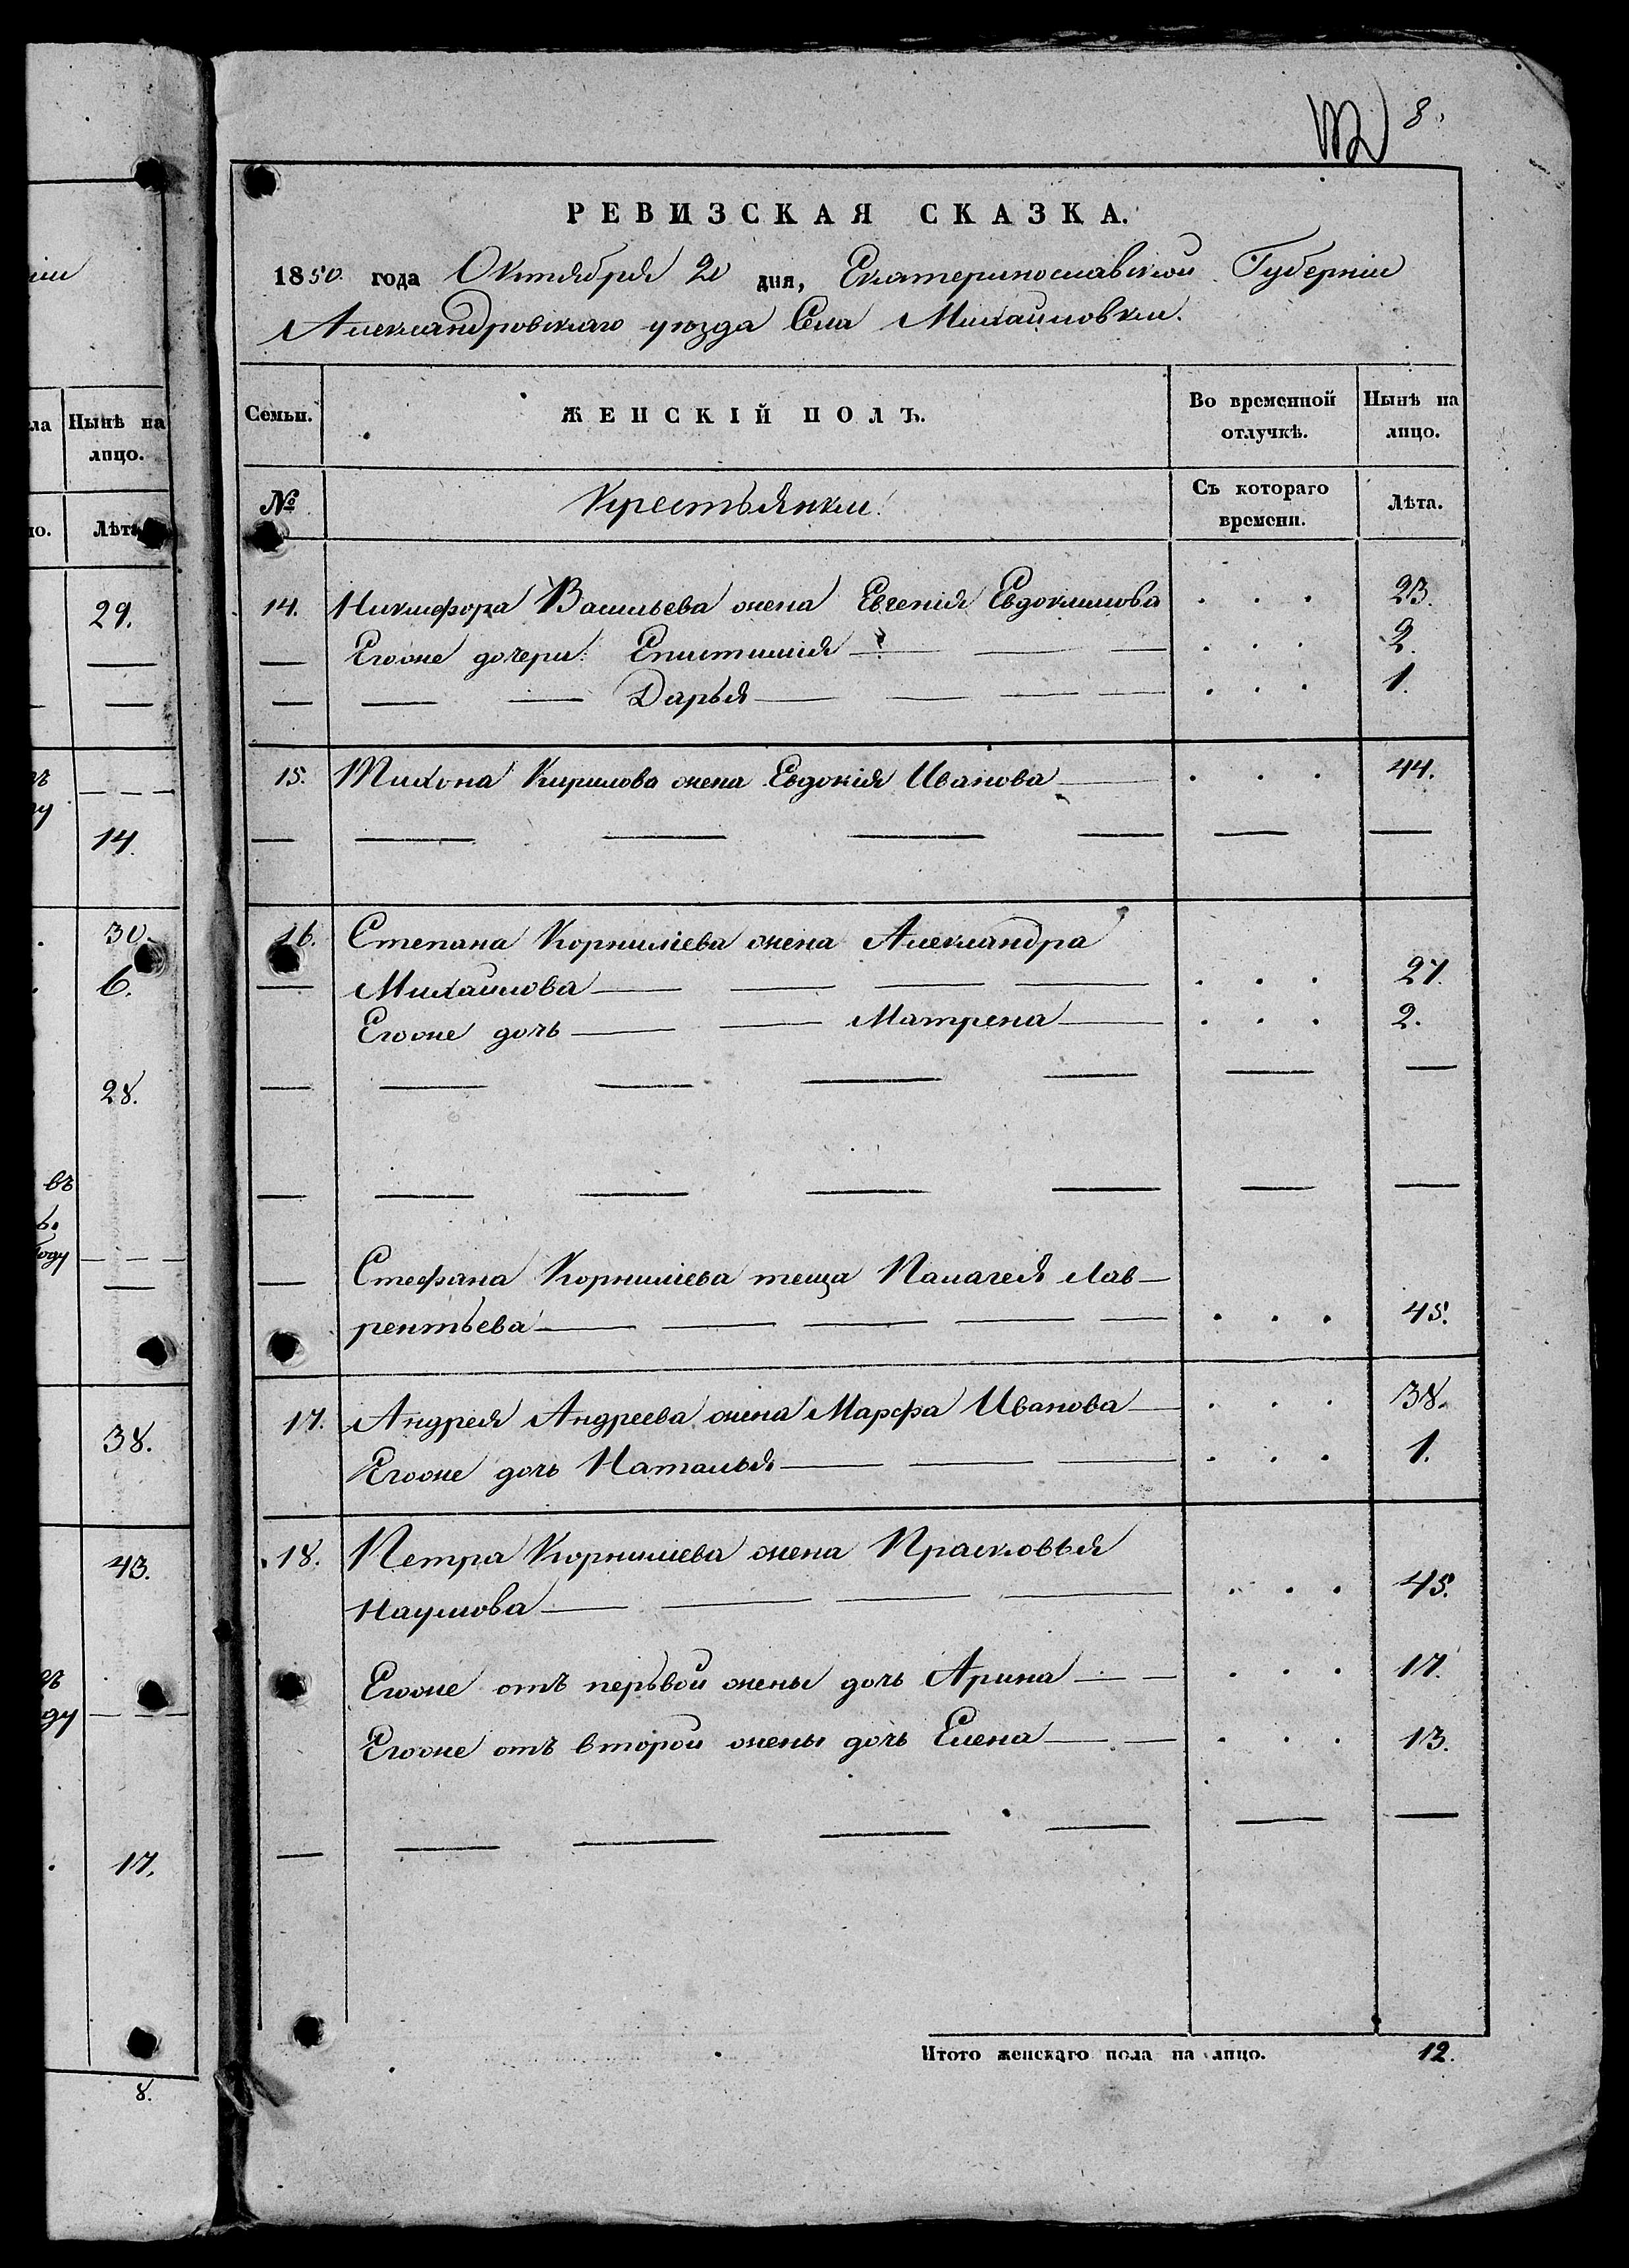 8.
РЕВИЗСКАЯ СКАЗКА.
1850. года Октября 2 дня, Екатеринославской Губерніи
Александровскаго уезда Села Михайловки.
Семьи. ЖЕНСКІЙ ПОЛЪ. Во временной отлучкѣ. Нынѣ на лицо.
№ Крестьянки. Съ котораго времени. Лѣта.
14. Никифора Васильева жена Евгенія Евдокимова . . . 23.
— Егоже дочери: Епистимія — — — . . . 2.
— — — Дарья — — — — . . . 1.
15. Тихона Кирилова жена Евдокія Иванова — . . . 44.
— — — — — — —
16. Степана Корниліева жена Александра
— Михайлова — — — — . . . 27.
Егоже дочь — — Матрена — . . . 2.
— — — — — — —
— — — — — — —
— Стефана Корниліева теща Палагея Лав—
рентьева — — — — — . . . 45.
17. Андрея Андреева жена Марфа Иванова — . . . 38.
Егоже дочь Наталья — — — . . . 1.
18. Петра Корниліева жена Прасковья
Наумова — — — — . . . 45.
Егоже отъ первой жены дочь Арина — — . . . 17.
Егоже отъ второй жены дочь Елена — — . . . 13.
— — — — — — —
Итого женскаго пола на лицо. 12.
Нынѣ на
лицо.
Лѣта
29.
14.
30.
6.
28.
въ
году
38.
43.
17.
8.